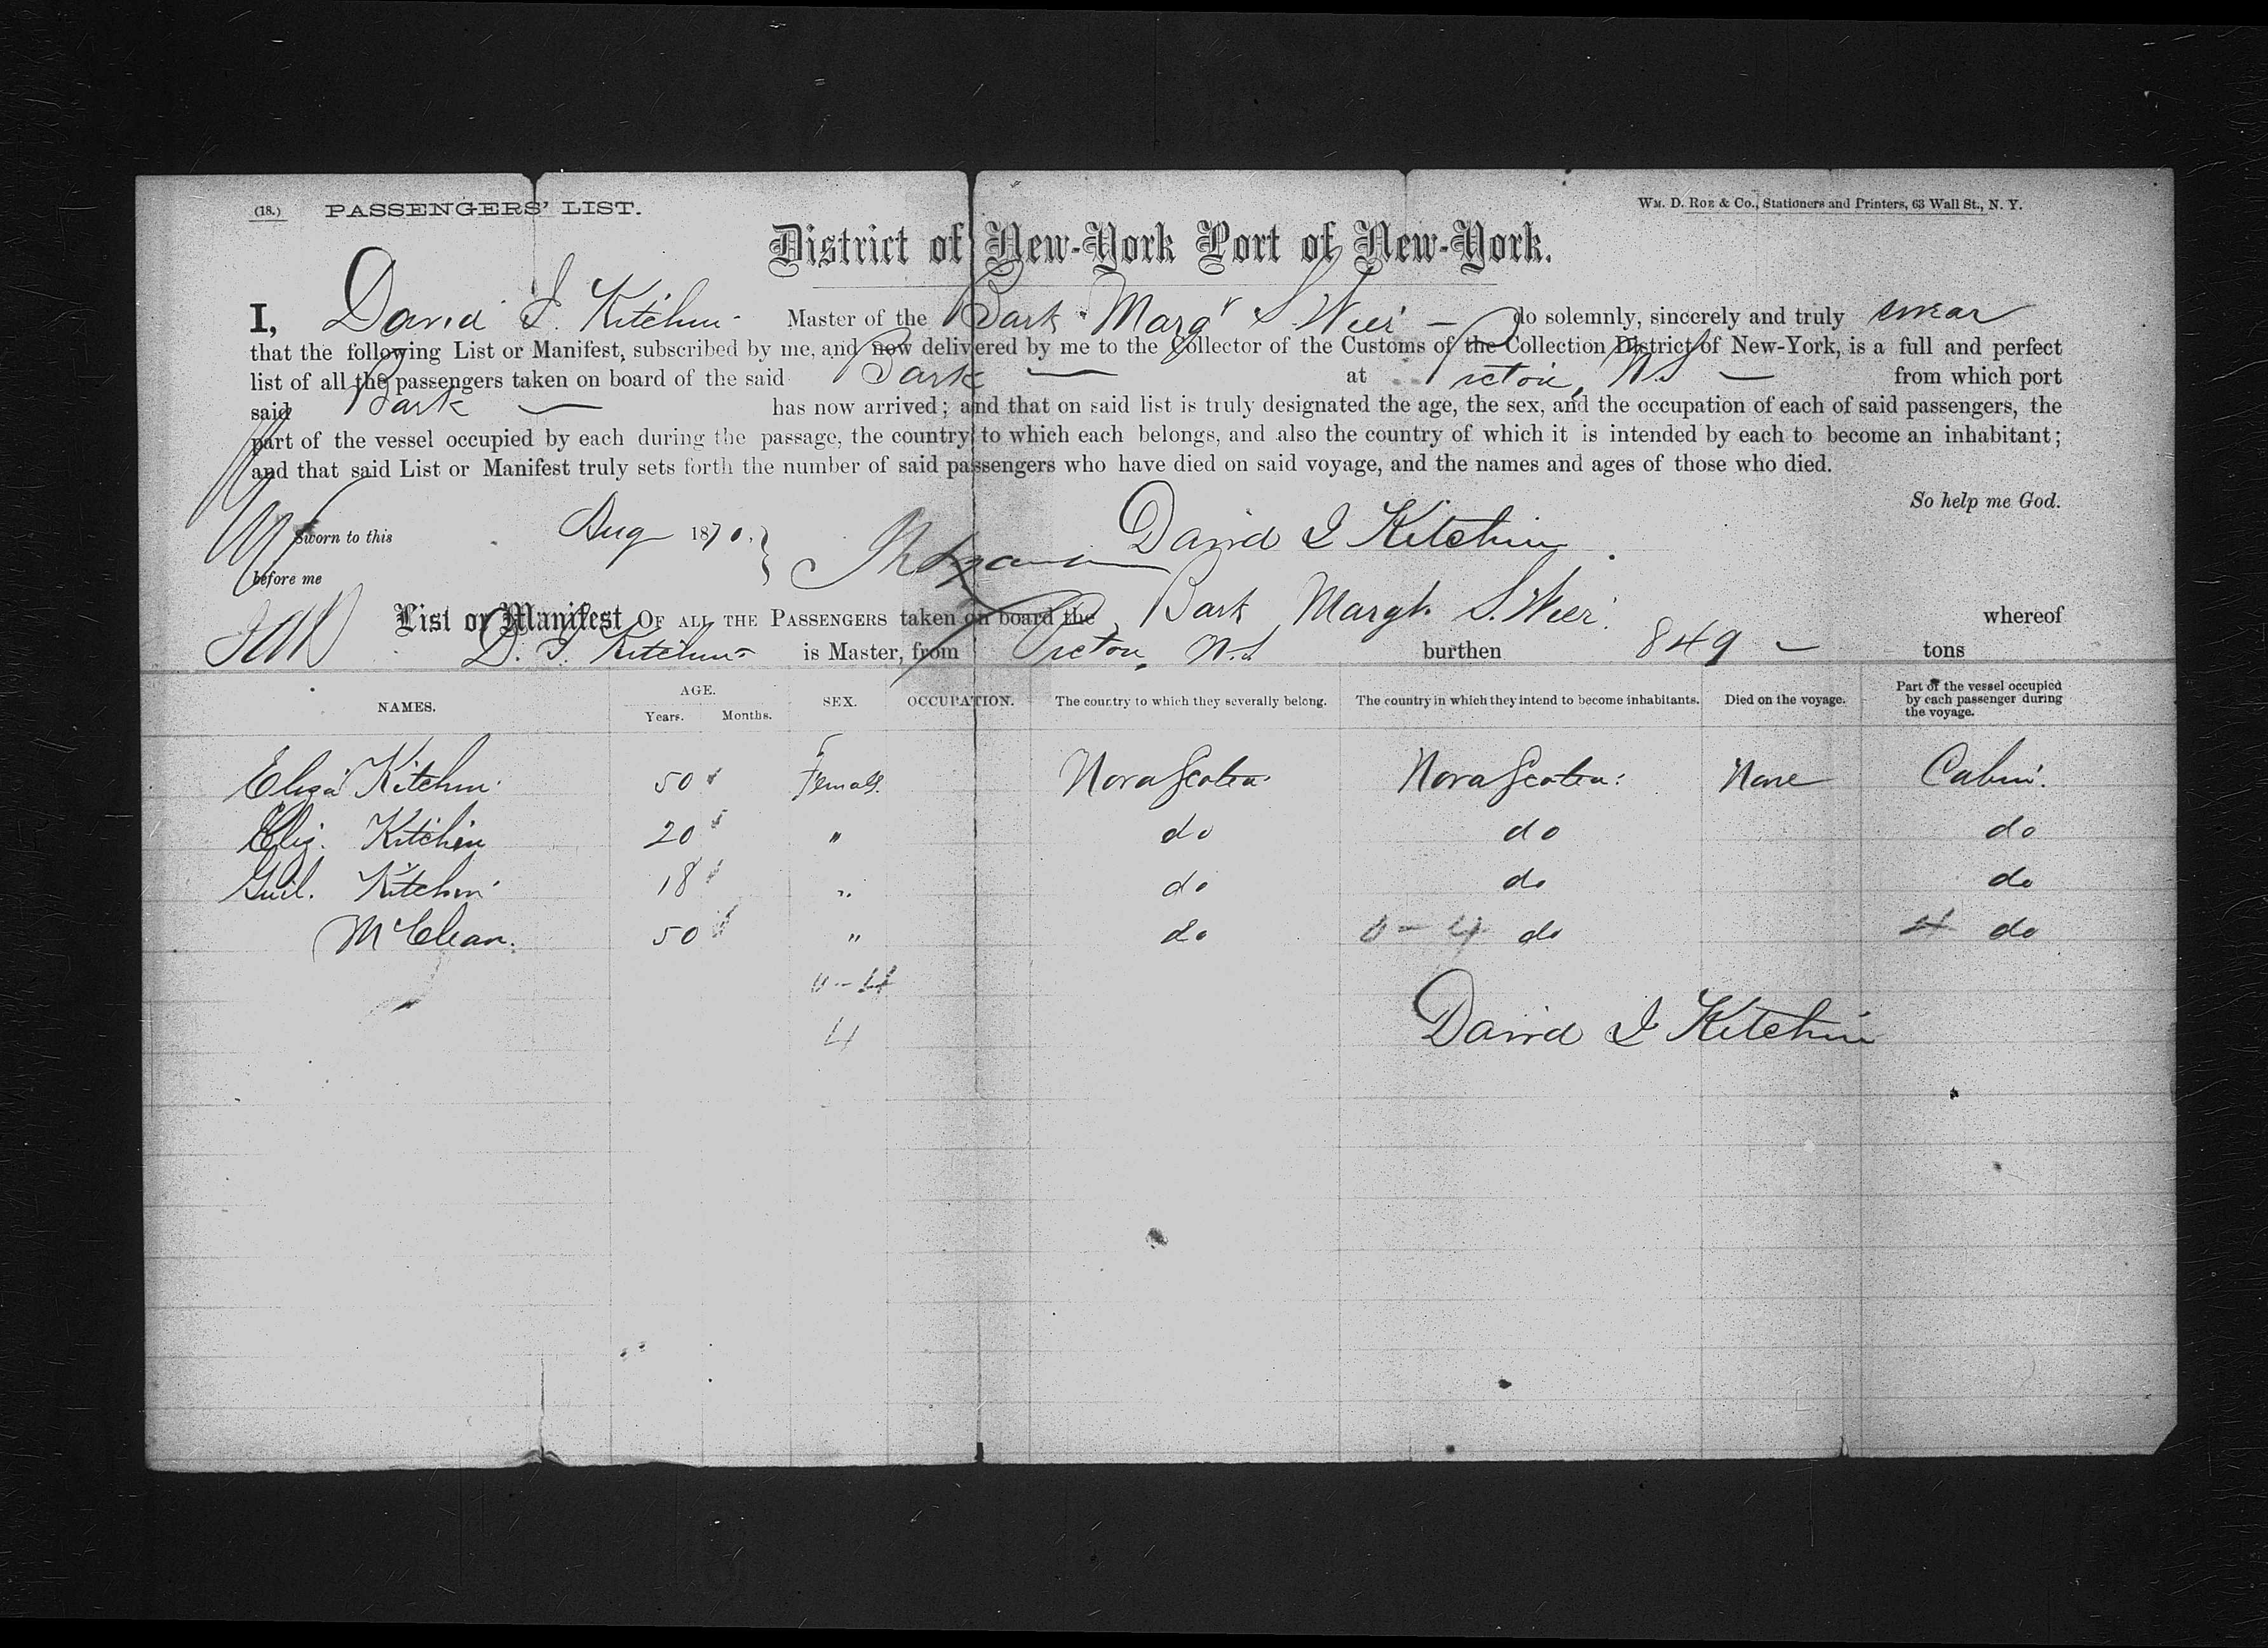 (18.) PASSENGERS' LIST.
Wm. D. Roe & Co., Stationers and Printers, 63 Wall St., N. Y.
District of New-York Port of New-York.
I, David I. Kitchin Master of the Bark Margt S. Weir — do solemnly, sincerely and truly swear
that the following List or Manifest, subscribed by me, and now delivered by me to the Collector of the Customs of the Collection District of New-York, is a full and perfect
list of all the passengers taken on board of the said Bark — at Pictou, N.S — from which port
said Bark — has now arrived; and that on said list is truly designated the age, the sex, and the occupation of each of said passengers, the
part of the vessel occupied by each during the passage, the country to which each belongs, and also the country of which it is intended by each to become an inhabitant;
and that said List or Manifest truly sets forth the number of said passengers who have died on said voyage, and the names and ages of those who died.
So help me God.
Sworn to this Aug 1870, David I Kitchin
before me
List or Manifest OF ALL THE PASSENGERS taken on board the Bark Margt. S. Weir. whereof
D. I. Kitchin is Master, from Pictou, N.S burthen 849 — tons
NAMES. AGE. Years. Months. SEX. OCCUPATION. The country to which they severally belong. The country in which they intend to become inhabitants. Died on the voyage. Part of the vessel occupied by each passenger during the voyage.
Eliza Kitchin. 50 Female. Nova Scotia. Nova Scotia. None Cabin.
Eliz. Kitchin 20 " do do do
Kitchin 18 " do do do
McClean. 50 " do 0-4 do 4 do
0-4
4
David I Kitchin